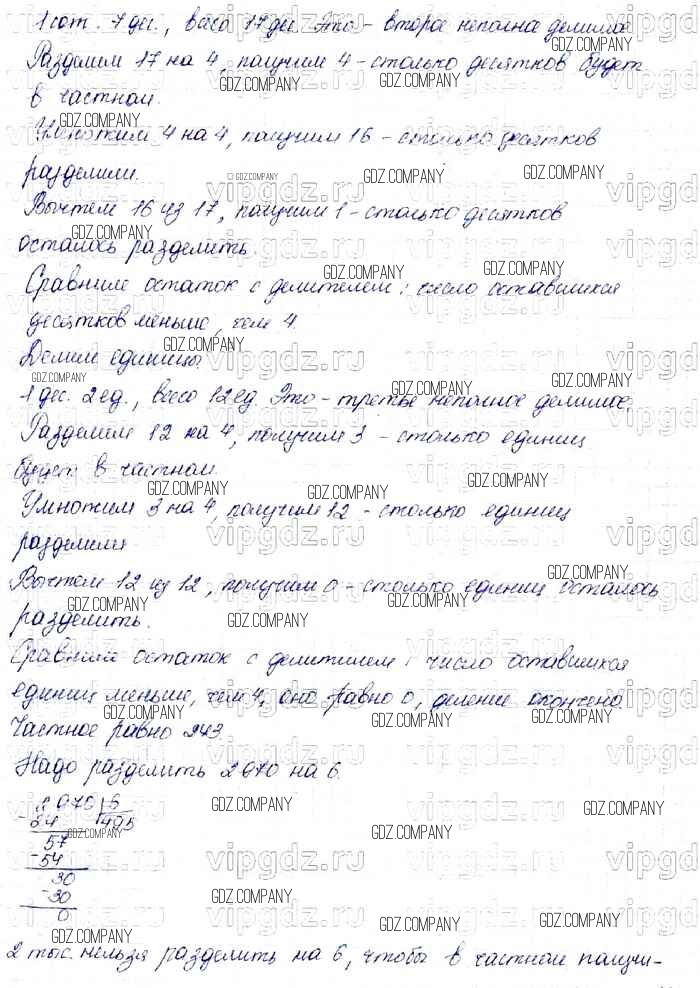 1 сот. 7 дес., всего 17 дес. Это - второе неполное делимое.
Разделим 17 на 4, получим 4 - столько десятков будет
в частном.
Умножим 4 на 4, получим 16 - столько десятков
разделили.
Вычтем 16 из 17, получим 1 - столько десятков
осталось разделить.
Сравним остаток с делителем: число оставшихся
десятков меньше, чем 4.
Делим единицы.
1 дес. 2 ед., всего 12 ед. Это - третье неполное делимое.
Разделим 12 на 4, получим 3 - столько единиц
будет в частном.
Умножим 3 на 4, получим 12 - столько единиц
разделили
Вычтем 12 из 12, получим 0 - столько единиц осталось
разделить.
Сравним остаток с делителем: число оставшихся
единиц меньше, чем 4, оно равно 0, деление окончено.
Частное равно 243
Надо разделить 2 970 на 6.
2 970 | 6
- 24 | 495
57
- 54
30
- 30
0
2 тыс. нельзя разделить на 6, чтобы в частном получи-
GDZ.COMPANY
vipgdz.ru